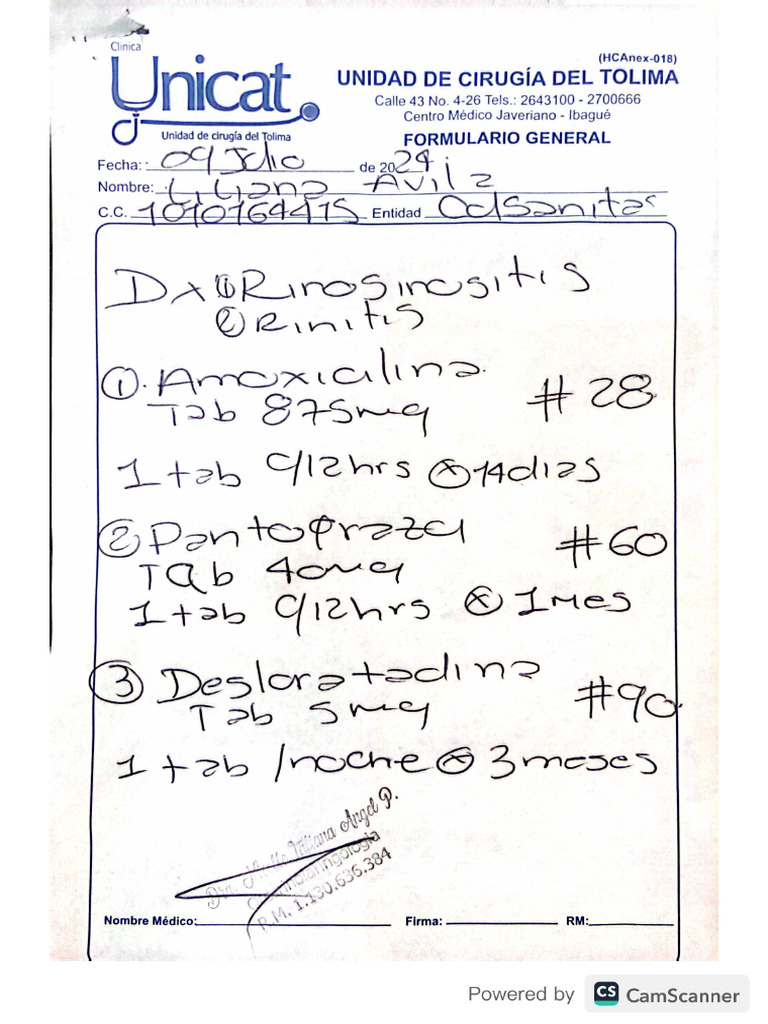 Clinica
Unicat
Unidad de cirugía del Tolima
(HCAnex-018)
UNIDAD DE CIRUGÍA DEL TOLIMA
Calle 43 No. 4-26 Tels.: 2643100 - 2700666
Centro Médico Javeriano - Ibagué
FORMULARIO GENERAL
Fecha: : 09 Julio de 2024
Nombre: Liliana Avila
C.C. 1010164415 Entidad Colsanitas
Dx ① Rinosinusitis
② Rinitis
①. Amoxicilina
Tab 875mg #28
1 tab c/12hrs ⓧ 14dias
② Pantoprazol #60
Tab 40mg
1 tab c/12hrs ⓧ 1 Mes
③ Desloratadina
Tab 5mg #90
1 tab /noche ⓧ 3 meses
Liliana Angel P.
Otorrinolaringología
R.M. 1.130.636.384
Nombre Médico: Firma: RM:
Powered by CS CamScanner